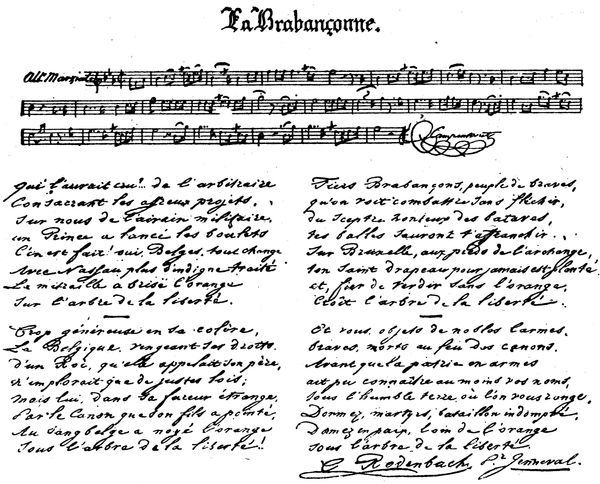 La Brabançonne.
All° Marziale
F. Campenhout
Qui l'aurait cru? de l'arbitraire
Consacrant les affreux projets,
Sur nous de l'airain militaire,
un Prince a lancé les boulets
C'en est fait! oui, Belges, tout change
Avec Nassau plus d'indigne traité
La mitraille a brisé l'orange
Sur l'arbre de la liberté.
Trop généreuse en sa colère,
La Belgique, vengeant ses droits
d'un Roi, qu'elle appelait son père,
n'implorait que de justes lois;
mais lui, dans sa fureur étrange,
Par le Canon que son fils a pointé,
Au sang belge a noyé l'orange
Sous l'arbre de la liberté!
Fiers Brabançons, peuple de braves,
qu'on voit combattre sans fléchir,
du Sceptre honteux des bataves,
tes balles sauront t'affranchir.
Sur Bruxelle, aux pieds de l'archange,
ton Saint drapeau pour jamais est planté
et, fier de verdir sans l'orange,
Croît l'arbre de la liberté.
Et vous, objets de nobles larmes,
braves, morts au feu des canons,
Avant que la patrie en armes
ait pu connaître au moins vos noms,
Sous l'humble terre où l'on vous range
Dormez, martyrs, bataillon indompté,
Dormez en paix, loin de l'orange
Sous l'arbre de la liberté
C. Rodenbach, pr Jenneval.